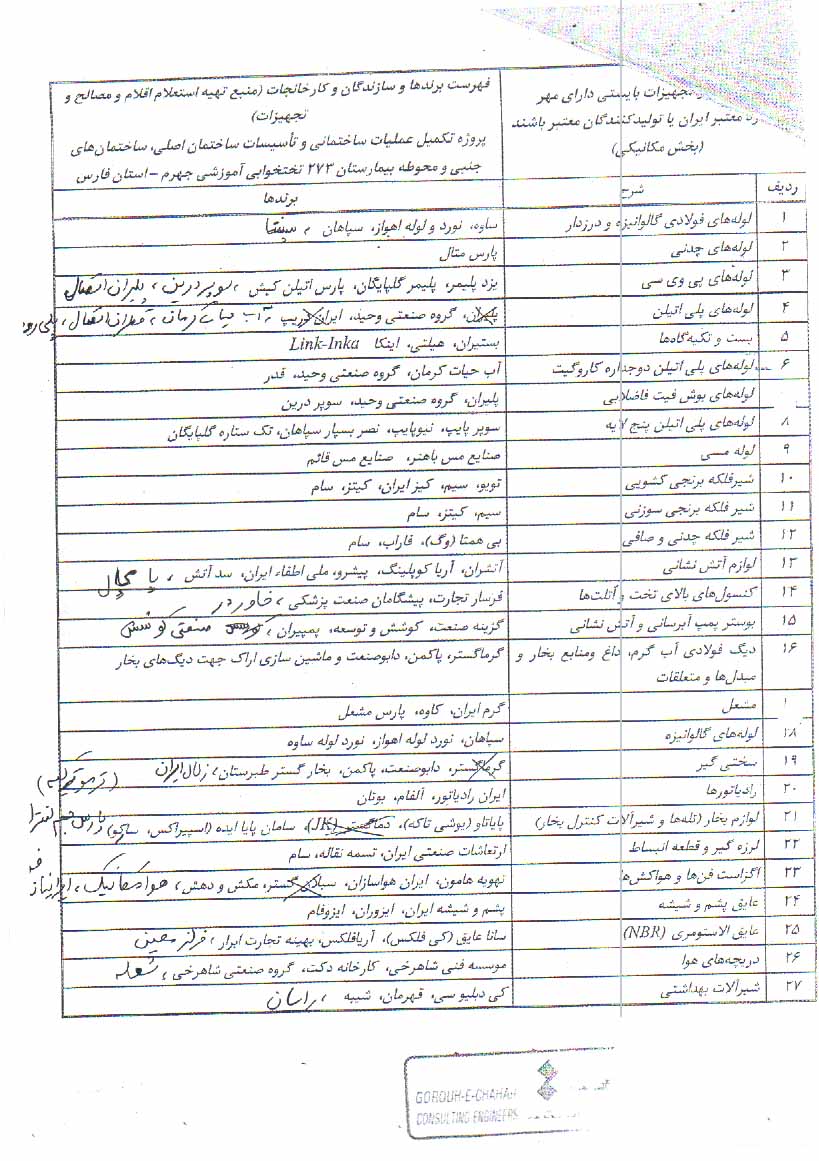 تجهیزات بایستی دارای مهر
معتبر ایران یا تولیدکنندگان معتبر باشند
(بخش مکانیکی)
فهرست برندها و سازندگان و کارخانجات (منبع تهیه استعلام اقلام و مصالح و
تجهیزات)
پروژه تکمیل عملیات ساختمانی و تأسیسات ساختمان اصلی، ساختمان‌های
جنبی و محوطه بیمارستان ۲۷۳ تختخوابی آموزشی جهرم – استان فارس
ردیف شرح برندها
۱ لوله‌های فولادی گالوانیزه و درزدار ساوه، نورد و لوله اهواز، سپاهان ، سپنتا
۲ لوله‌های چدنی پارس متال
۳ لوله‌های پی وی سی یزد پلیمر، پلیمر گلپایگان، پارس اتیلن کیش ، سوپر درین ، پلیران اتصال
۴ لوله‌های پلی اتیلن پلیران، گروه صنعتی وحید، ایران دریپ ، آب حیات کرمان ، اتصال ، پلی رود
۵ بست و تکیه‌گاه‌ها بستیران، هیلتی، اینکا Link-Inka
۶ لوله‌های پلی اتیلن دوجداره کاروگیت آب حیات کرمان، گروه صنعتی وحید، قدر
لوله‌های پوش فیت فاضلابی پلیران، گروه صنعتی وحید، سوپر درین
۸ لوله‌های پلی اتیلن پنج لایه سوپر پایپ، نیوپایپ، نصر بسپار سپاهان، تک ستاره گلپایگان
۹ لوله مسی صنایع مس باهنر، صنایع مس قائم
۱۰ شیرفلکه برنجی کشویی تویو، سیم، کیز ایران، کیتز، سام
۱۱ شیر فلکه برنجی سوزنی سیم، کیتز، سام
۱۲ شیر فلکه چدنی و صافی بی همتا (وگ)، فاراب، سام
۱۳ لوازم آتش نشانی آتشران، آریا کوپلینگ، پیشرو، ملی اطفاء ایران، سد آتش ،
۱۴ کنسول‌های بالای تخت و آتلت‌ها فرساز تجارت، پیشگامان صنعت پزشکی ، خاور در
۱۵ بوستر پمپ آبرسانی و آتش نشانی گزینه صنعت، کوشش و توسعه، پمپیران ، صنعتی کوشش
۱۶ دیگ فولادی آب گرم، داغ ومنابع بخار و گرماگستر، پاکمن، دابوصنعت و ماشین سازی اراک جهت دیگ‌های بخار
مبدل‌ها و متعلقات
۱ مشعل گرم ایران، کاوه، پارس مشعل
۱۸ لوله‌های گالوانیزه سپاهان، نورد لوله اهواز، نورد لوله ساوه
۱۹ سختی گیر گرماگستر، دابوصنعت، پاکمن، بخار گستر طبرستان، زلال ایران
۲۰ رادیاتورها ایران رادیاتور، آلفام، بوتان
۲۱ لوازم بخار (تله‌ها و شیرآلات کنترل بخار) پایاتاو (یوشی تاکه)، دماگستر (JK)، سامان پایا ایده (اسپیراکس، سارکو)
۲۲ لرزه گیر و قطعه انبساط ارتعاشات صنعتی ایران، تسمه نقاله، سام
۲۳ اگزاست فن‌ها و هواکش‌ها تهویه هامون، ایران هواسازان، سبلان گستر، مکش و دهش ، هوا مکانیک ،
۲۴ عایق پشم و شیشه پشم و شیشه ایران، ایزوران، ایزوفام
۲۵ عایق الاستومری (NBR) سانا عایق (کی فلکس)، آریافلکس، بهینه تجارت ابرار ،
۲۶ دریچه‌های هوا موسسه فنی شاهرخی، کارخانه دکت، گروه صنعتی شاهرخی ، شعله
۲۷ شیرآلات بهداشتی کی دبلیو سی، قهرمان، شیبه ، راسان
GOROUH-E-CHAHAR
CONSULTING ENGINEERS